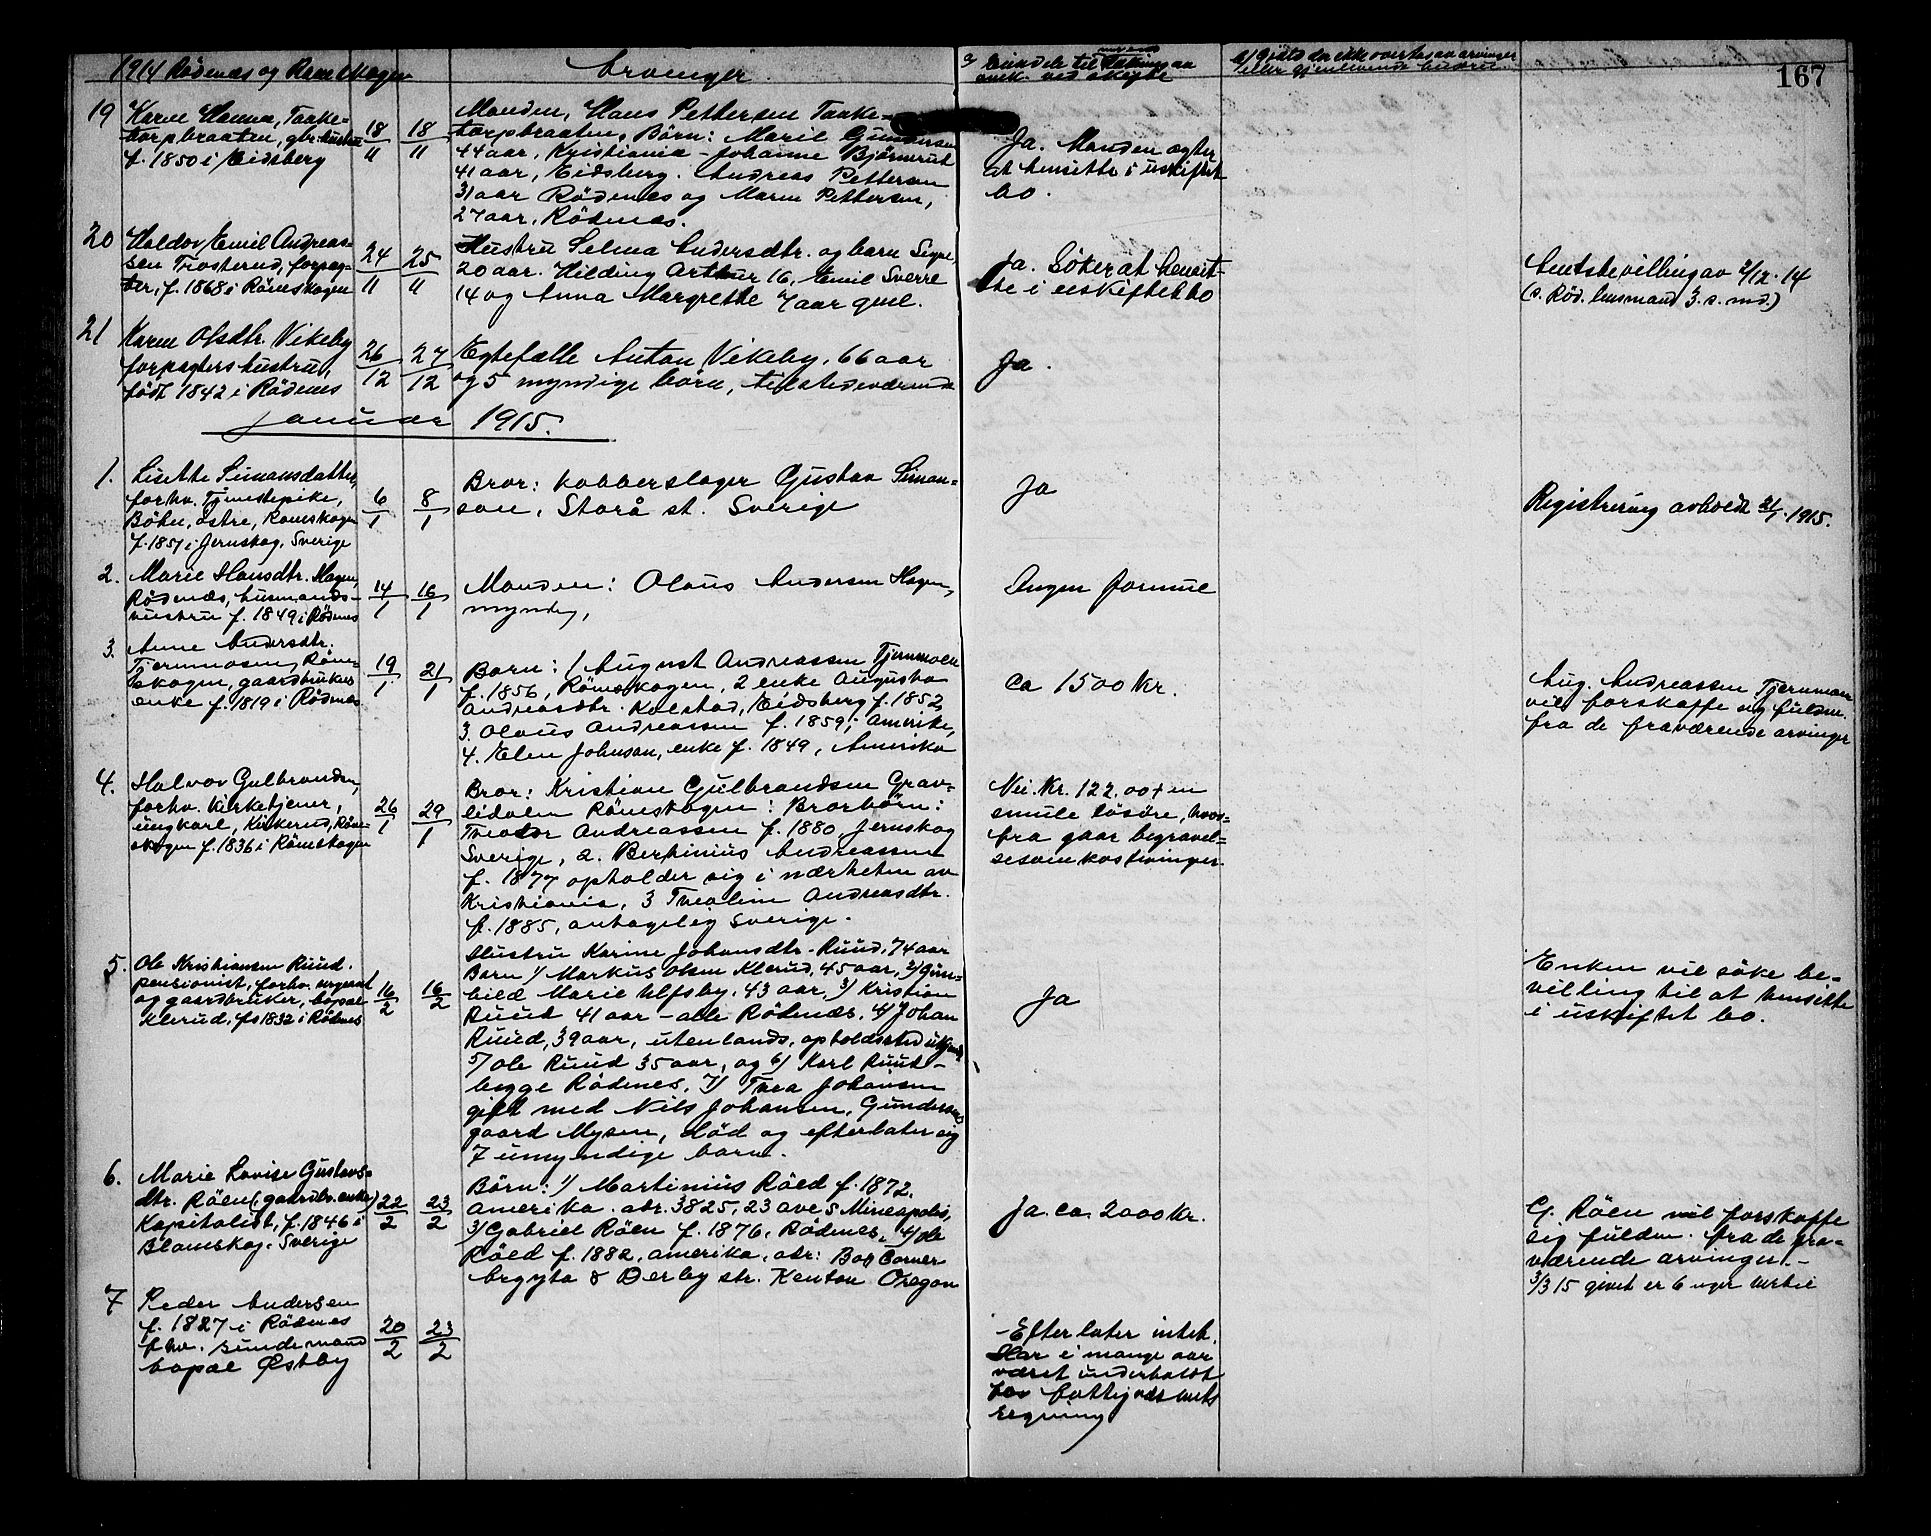 1914 Rödenæs og Römskogen
Arvinger
167
19
Karen Hanna, Taake-
torpbraaten, gbr. hustru
f. 1850 i Eidsberg
18/11
18/11
Manden, Hans Pettersen Taake-
torpbraaten. Börn: Marie Gundersen
44 aar, Kristiania - Johanne Björnerud
41 aar, Eidsberg. Andreas Pettersen
31 aar Rödenes og Maren Pettersen,
27 aar, Rödenæs.
Ja. Manden agter
at hensitte i uskiftet
bo.
20
Haldor Emil Andreas-
sen Trosterud, forpag-
ter, f. 1868 i Römskogen
24/11
25/11
Hustru Selma Andersdtr. og barn Signe
20 aar. Hilding Arthur 16, Emil Sverre
14 og Anna Margrethe 7 aar gml.
Ja. Söker at hensit-
te i uskiftet bo
Amtsbevilling av 2/12. 14
(s. Röd. lensmand 3. s. md.)
21
Karen Olsdtr. Vikeby
forpagters hustru,
född 1842 i Rödenes
26/12
27/12
Egtefælle Anton Vikeby, 66 aar
og 5 myndige börn, tilstedeværende
Ja.
Januar 1915.
1.
Lisette Simonsdatter,
forhv. Tjenestepike,
Böhn, östre, Römskogen
f. 1857 i Jernskog, Sverige
6/1
8/1
Bror: Kobberslager Gustav Simon-
son, Storå st. Sverige
Ja
Registrering avholdt 21/1. 1915.
2.
Marie Hansdtr. Hagen,
Rödenæs, husmands-
hustru f. 1849 i Rödenes
14/1
16/1
Manden: Olaus Andersen Hagen,
myndig,
Ingen formue
3.
Anne Andersdtr.
Tjernmosen, Röm-
skogen, gaardbrukers
enke f. 1819 i Rödenæs
19/1
21/1
Barn: 1 August Andreassen Tjernmoen
f. 1856, Römskogen, 2 enke Augusta
Andreasdtr. Kolstad, Eidsberg f. 1852,
3. Olaus Andreassen f. 1859, i Amerika,
4. Elen Johnson, enke f. 1849, Amerika
Ca 1500 Kr.
Aug. Andreassen Tjernmoen
vil forskaffe sig fuldm.
fra de fraværende arvinger
4.
Halvor Gulbrandsen,
forhv. Kirketjener,
ungkarl, Kirkerud, Röm-
skogen f. 1836 i Römskogen
26/1
29/1
Bror: Kristian Gulbrandsen Grav-
lidalen Römskogen: Brorbörn:
Theodor Andreassen f. 1880, Jernskog
Sverige, 2. Berthinius Andreassen
f. 1877 opholder sig i nærheten av
Kristiania, 3 Theoline Andreasdtr.
f. 1885, antagelig Sverige.
Nei. Kr. 122.00 + en
smule lösöre, hvor-
fra gaar begravel-
sesomkostninger.
5.
Ole Kristiansen Ruud.
pensionist, forhv. sergeant
og gaardbruker, bopæl
Klerud, fs 1832 i Rödenes
16/2
16/2
Hustru Karine Johansdtr. Ruud, 74 aar
Barn 1/ Markus Olsen Klerud, 45 aar, 2/ Gun-
hild Marie Ulfsby. 43 aar, 3/ Kristian
Ruud 41 aar - alle Rödenæs. 4/ Johan
Ruud, 39 aar, utenlands, opholdssted ukjendt
5/ Ole Ruud 35 aar, og 6/ Karl Ruud -
begge Rödenes, 7/ Thea Johansen
gift med Nils Johansen, Gundersens
gaard Mysen, död og efterlater sig
7 umyndige barn.
Ja
Enken vil söke be-
villing til at hensitte
i uskiftet bo.
6.
Marie Lovise Gustavs-
dtr. Röen (gaardbr. enke)
Kapitalist, f. 1846 i
Blomskog. Sverige
22/2
23/2
Börn: 1/ Martinius Röed f. 1872,
amerika. adr. 3825, 23 ave S Mineapolis,
3/ Gabriel Röen f. 1876, Rödenes, 4/ Ole
Röed f. 1882, amerika, adr: Box Corner
brgyta & Derby str. Kenton Oregon
Ja. ca. 2000 Kr.
G. Röen vil forskaffe
sig fuldm. fra de fra-
værende arvinger. -
3/3 15 givet er 6 uger
7
Peder Andersen
f. 1827 i Rödenes
fhv.
bopæl Østby
20/2
23/2
- Efterlater intet.
Har i mange aar
været underholdt
for fattigvæsenets
regning